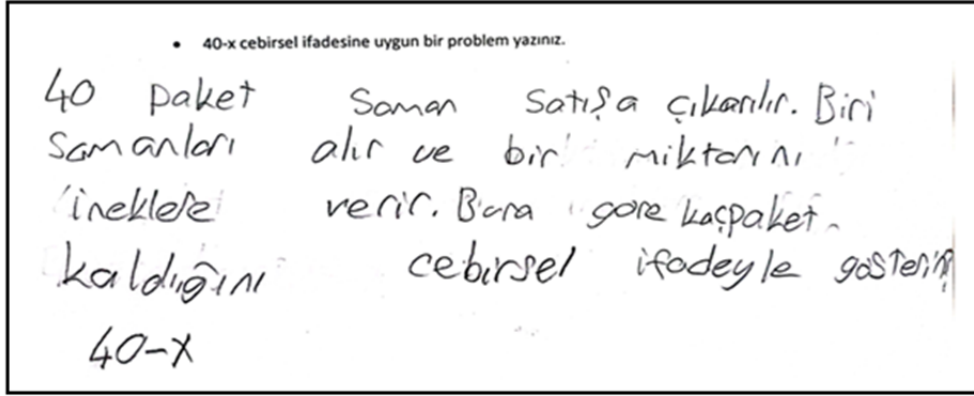 • 40-x cebirsel ifadesine uygun bir problem yazınız.
40 paket Saman Satışa çıkarılır. Biri
Samanları alır ve bir miktarını
ineklere verir. Buna göre kaç paket
kaldığını cebirsel ifadeyle gösterin
40-x